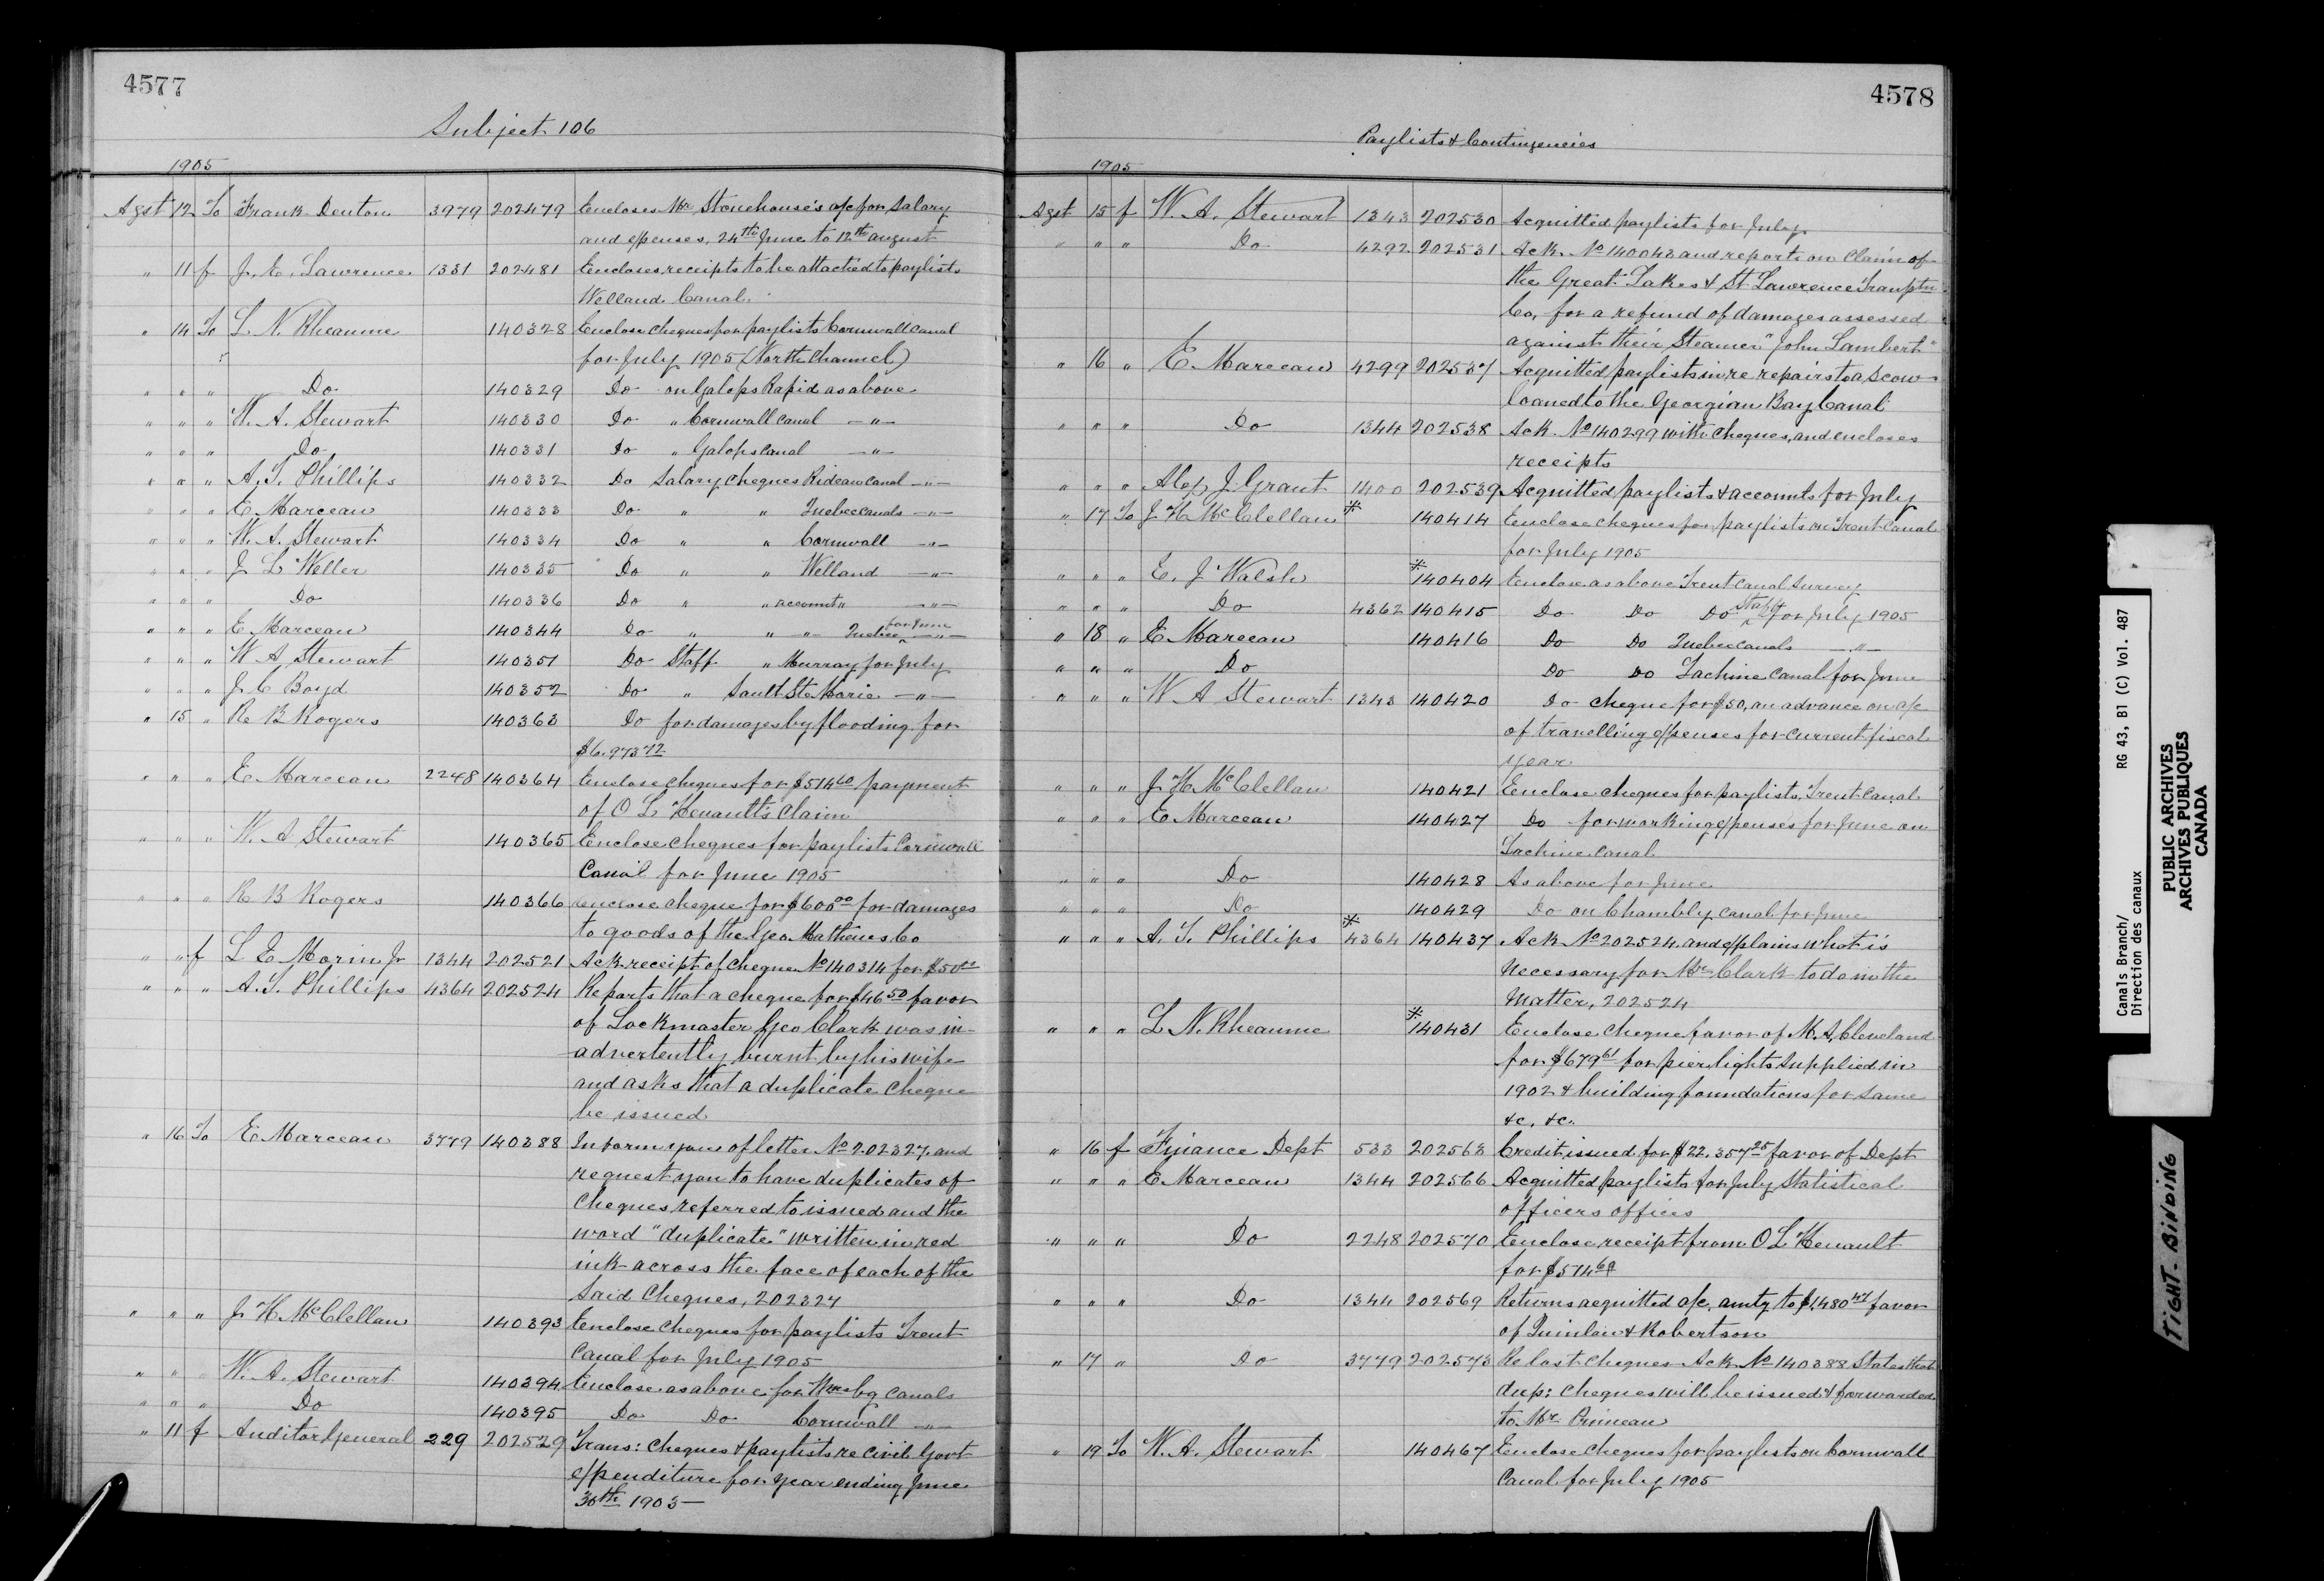 4577
Subject 106
1905
Agst 12 To Frank Denton 3979 202479 Encloses Mr Stonehouse's a/c for Salary
and expenses, 24th June to 12th august
" 11 f J. E. Lawrence 1331 202481 Encloses receipts to be attached to paylists
Welland Canal.
" 14 To L. N. Rheaume 140328 Enclose cheques for paylists Cornwall Canal
for July 1905 (North Channel)
" " " Do 140329 Do on Galops Rapid as above
" " " W. A. Stewart 140330 Do " Cornwall Canal — " —
" " " Do 140331 Do " Galops Canal — " —
" " " A. T. Phillips 140332 Do Salary cheques Rideau Canal — " —
" " " E Marceau 140333 Do " " Quebec Canals — " —
" " " W. A. Stewart 140334 Do " " Cornwall — " —
" " " J L Weller 140335 Do " " Welland — " —
" " " Do 140336 Do " " account " — " —
" " " E Marceau 140344 Do " " — " — Quebec for June — " —
" " " W A Stewart 140351 Do Staff " Murray for July
" " " J. C Boyd 140352 Do " Sault Ste Marie — " —
" 15 " R B Rogers 140363 Do for damages by flooding for
$6,973.72
" " " E Marceau 2248 140364 Enclose cheques for $514.60 payment
of O L Henault's Claim
" " " W. A Stewart 140365 Enclose cheques for paylists Cornwall
Canal for June 1905
" " " R B Rogers 140366 enclose cheque for $600.00 for damages
to goods of the Geo Mathews Co
" " f L E Morin Jr 1344 202521 Ack receipt of cheque No 140314 for $50.00
" " " A. T. Phillips 4364 202524 Reports that a cheque for $46.50 favor
of Lockmaster Geo Clark was in-
advertently burnt by his wife
and asks that a duplicate cheque
be issued
" 16 To E Marceau 3779 140388 Inform you of letter No 202327, and
request you to have duplicates of
cheques referred to issued and the
word "duplicate" written in red
ink across the face of each of the
Said Cheques, 202327
" " " J. H. McClellan 140393 Enclose Cheques for paylists Trent
Canal for July 1905
" " " W. A. Stewart 140394 Enclose as above for Wmsbg Canals
" " " Do 140395 Do Do Cornwall — " —
" 11 f Auditor General 229 202529 Trans: Cheques & paylists re Civil Govt
expenditure for year ending June
30th 1903 —
4578
Paylists & Contingencies
1905
Agst 15 f W. A. Stewart 1343 202530 Acquitted paylists for July
" " " Do 4292 202531 Ack. No 140043 and reports on Claim of
the Great Lakes & St Lawrence Tranptn
Co, for a refund of damages assessed
against their Steamer "John Lambert"
" 16 " E Marceau 4299 202537 Acquitted paylists in re repairs to a scow
loaned to the Georgian Bay Canal
" " " Do 1344 202538 Ack No 140299 with cheques, and encloses
receipts
" " " Alex J. Grant 1400 202539 Acquitted paylists & accounts for July
" 17 To J H McClellan * 140414 Enclose cheques for paylists on Trent Canal
for July 1905
" " " E. J Walsh * 140404 Enclose as above Trent Canal Survey
" " " Do 4362 140415 Do Do Do Staff for July 1905
" 18 " E Marceau 140416 Do Do Quebec canals — " —
" " " Do Do Do Lachine Canal for June
" " " W A Stewart 1343 140420 Do cheque for $50, an advance on a/c
of travelling expenses for current fiscal
year
" " " J H McClellan 140421 Enclose cheques for paylists, Trent Canal
" " " E Marceau 140427 Do for working expenses for June on
Lachine Canal
" " " Do 140428 As above for June
" " " Do 140429 Do on Chambly canal for June
" " " A. T. Phillips * 4364 140437 Ack No 202524 and explains what is
necessary for Mr Clark to do in the
Matter, 202524
" " " L N. Rheaume * 140431 Enclose Cheque favor of M. A, Cleveland
for $679.61 for pier lights supplied in
1902 & building foundations for same
&c, &c.
" 16 f Finance Dept 533 202563 Credit issued for $22,357.25 favor of Dept
" " " E Marceau 1344 202566 Acquitted paylists for July Statistical
officers offices
" " " Do 2248 202570 Enclose receipt from O L Henault
for $514.60
" " " Do 1344 202569 Returns acquitted a/c, amtg to $1,480.47 favor
of Quinlan & Robertson
" 17 " Do 3779 202573 Re lost cheques Ack No 140388 States that
dup: cheques will be issued & forwarded
to Mr Primeau
" 19 To W. A. Stewart 140467 Enclose cheques for paylists on Cornwall
Canal for July 1905
Canals Branch/ RG 43, B1 (C) Vol. 487
Direction des canaux
PUBLIC ARCHIVES
ARCHIVES PUBLIQUES
CANADA
TIGHT-BINDING